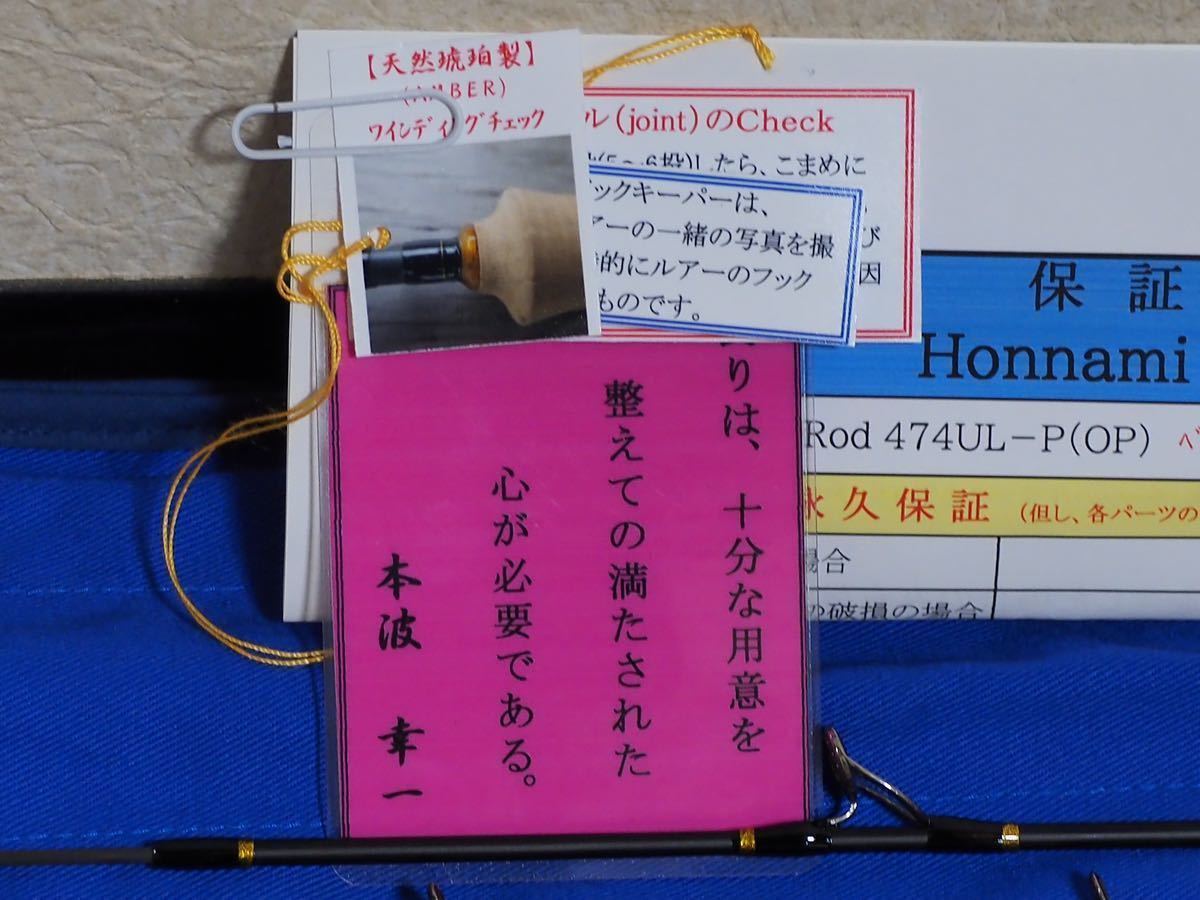 【天然琥珀製】
(AMBER)
ワインディングチェック
ル(joint)のCheck
したら、こまめに
び
因
ックキーパーは、
アーの一緒の写真を撮
的にルアーのフック
ものです。
保 証
Honnami
Rod 474UL-P(OP)
永久保証 (但し、各パーツの
場合
の破損の場合
りは、 十分な用意を
整えての満たされた
心が必要である。
本波 幸一